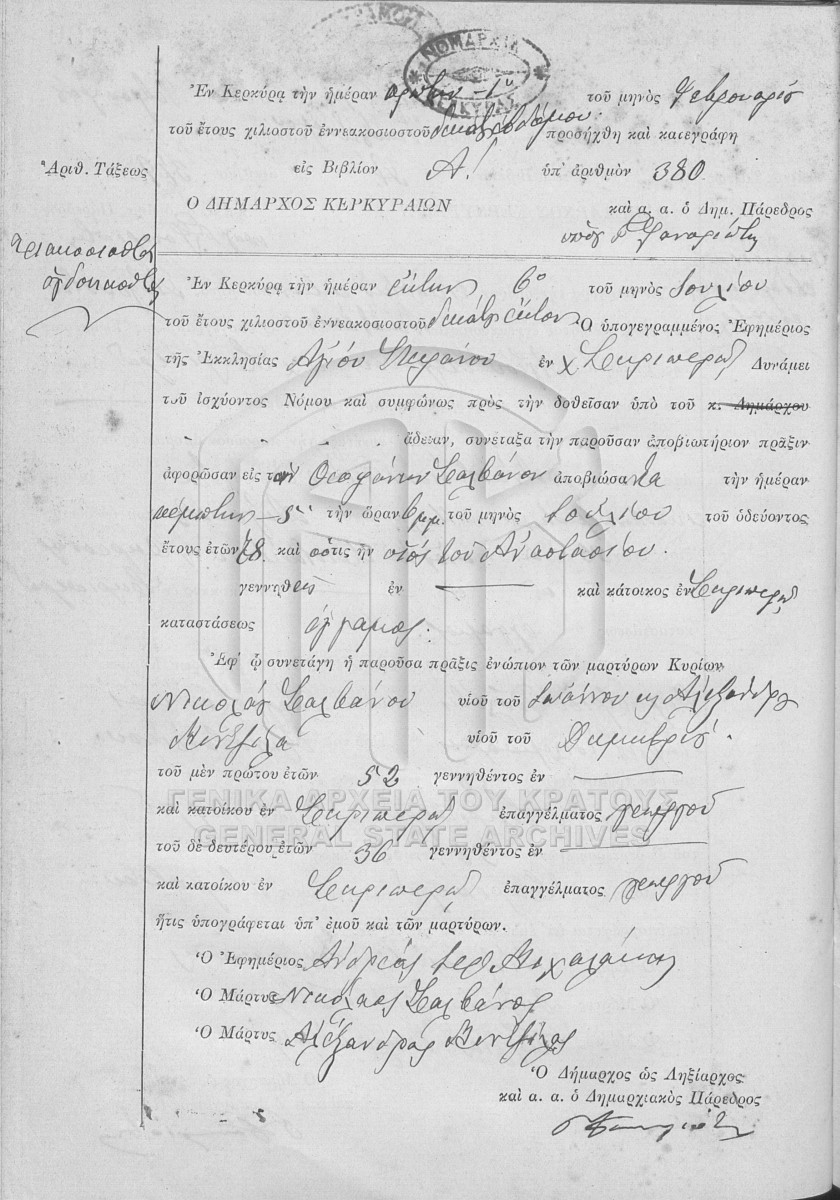 ΝΟΜΑΡΧΙΑ
ΚΕΡΚΥΡΑΣ
Ἐν Κερκύρᾳ τὴν ἡμέραν πρώτην 1η τοῦ μηνὸς Φεβρουαρίου
τοῦ ἔτους χιλιοστοῦ ἐννεακοσιοστοῦ δεκάτου ἑβδόμου προσήχθη καὶ κατεγράφη
Ἀριθ. Τάξεως
εἰς Βιβλίον Α! ὑπ' ἀριθμὸν 380
Ο ΔΗΜΑΡΧΟΣ ΚΕΡΚΥΡΑΙΩΝ
καὶ α. α. ὁ Δημ. Πάρεδρος
τριακοσιοστὸς
ὀγδοηκοστὸς
Ἐν Κερκύρᾳ τὴν ἡμέραν ἕκτην 6η τοῦ μηνὸς Ἰουλίου
τοῦ ἔτους χιλιοστοῦ ἐννεακοσιοστοῦ δεκάτου ἕκτου Ὁ ὑπογεγραμμένος Ἐφημέριος
τῆς Ἐκκλησίας Ἁγίου Στεφάνου ἐν χ Σκριπεροῦ Δυνάμει
τοῦ ἰσχύοντος Νόμου καὶ συμφώνως πρὸς τὴν δοθεῖσαν ὑπὸ τοῦ κ. Δημάρχου
ἄδειαν, συνέταξα τὴν παροῦσαν ἀποβιωτήριον πρᾶξιν
ἀφορῶσαν εἰς τὸν Θεοφάνην Σαλβάνον ἀποβιώσαντα τὴν ἡμέραν
πέμπτην 5 τὴν ὥραν 6 μ.μ. τοῦ μηνὸς Ἰουλίου τοῦ ὁδεύοντος
ἔτους ἐτῶν 78 καὶ ὅστις ἦν υἱὸς τοῦ Ἀναστασίου.
γεννηθεὶς ἐν καὶ κάτοικος ἐν Σκριπεροῦ
καταστάσεως ἄγαμος.
Ἐφ' ᾧ συνετάγη ἡ παροῦσα πρᾶξις ἐνώπιον τῶν μαρτύρων Κυρίων
Νικολάου Σαλβάνου υἱοῦ τοῦ Ἰωάννου κ Ἀλεξάνδρου
Κεντζίλα υἱοῦ τοῦ Δημητρίου.
τοῦ μὲν πρώτου ἐτῶν 52 γεννηθέντος ἐν
ΓΕΝΙΚΑ ΑΡΧΕΙΑ ΤΟΥ ΚΡΑΤΟΥΣ
καὶ κατοίκου ἐν Σκριπεροῦ ἐπαγγέλματος γεωργοῦ
GENERAL STATE ARCHIVES
τοῦ δὲ δευτέρου ἐτῶν 36 γεννηθέντος ἐν
καὶ κατοίκου ἐν Σκριπεροῦ ἐπαγγέλματος γεωργοῦ
ἥτις ὑπογράφεται ὑπ' ἐμοῦ καὶ τῶν μαρτύρων.
Ὁ Ἐφημέριος Ἀνδρέας ἱερ
Ὁ Μάρτυς Νικόλαος Σαλβάνος
Ὁ Μάρτυς Ἀλέξανδρος Κεντζίλας
Ὁ Δήμαρχος ὡς Ληξίαρχος
καὶ α. α. ὁ Δημαρχιακὸς Πάρεδρος